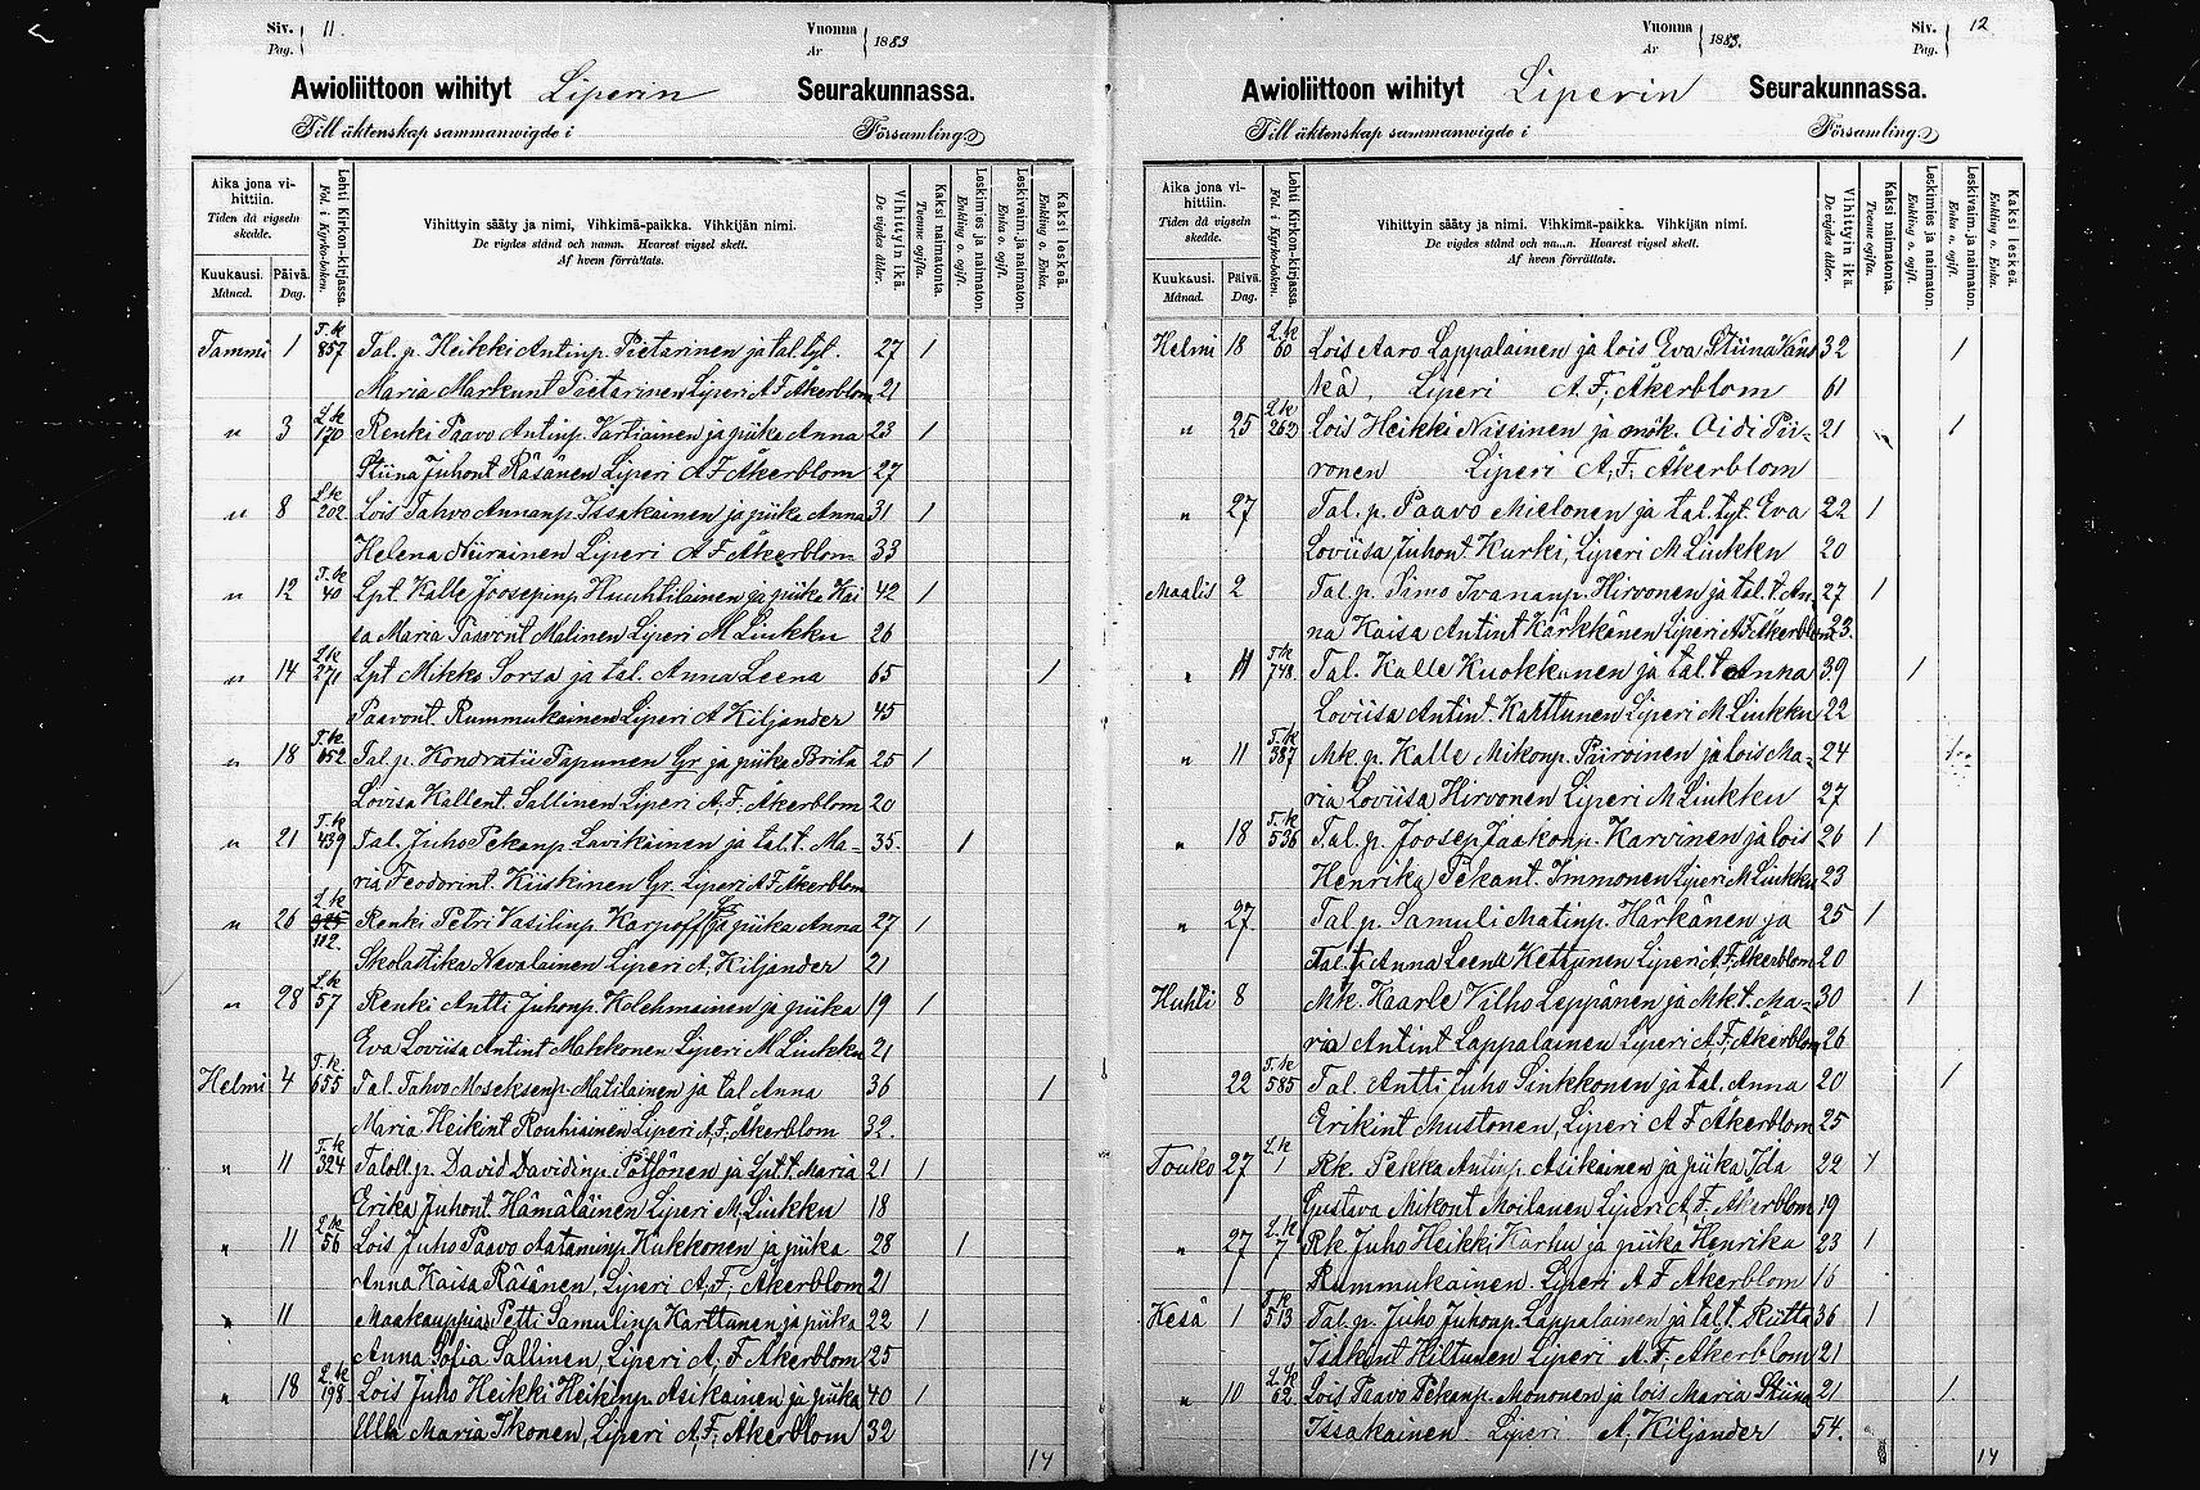 Siv. 11.
Pag.
Vuonna 1883
År
Awioliittoon wihityt Liperin Seurakunnassa.
Till äktenskap sammanwigde i Församling.
Aika jona vihittiin.
Tiden då vigseln skedde.
Kuukausi. Månad.
Päivä. Dag.
Lehti Kirkon-kirjassa. Fol. i Kyrko-boken.
Vihittyin sääty ja nimi, Vihkimä-paikka. Vihkijän nimi.
De vigdes stånd och namn. Hvarest vigsel skett.
Af hvem förrättats.
Vihittyin ikä. De vigdes ålder.
Kaksi naimatonta. Tvenne ogifta.
Leskimies ja naimaton. Enkling o. ogift.
Leskivaim. ja naimaton. Enka o. ogift.
Kaksi leskeä. Enkling o. Enka.
Tammi 1 T.k 857 Tal. p. Heikki Antinp. Pietarinen ja tal. tyt. 27 1
Maria Markunt Pietarinen Liperi A F Åkerblom 21
" 3 L.k 170 Renki Paavo Antinp. Vartiainen ja piika Anna 23 1
Stiina Juhont Räsänen Liperi A F Åkerblom 27
" 8 L.k 202 Lois Tahvo Annanp Issakainen ja piika Anna 31 1
Helena Niirainen Liperi A F Åkerblom 33
" 12 T.k 40 Lpt. Kalle Joosepinp Huuhtilainen ja piika Kai 42 1
sa Maria Paavont Malinen Liperi M Liukku 26
" 14 L.k 271 Lpt Mikko Sorsa ja tal. Anna Leena 65 1
Paavont. Rummukainen Liperi A Kiljander 45
" 18 T.k. 652 Tal. p. Kondratii Tapunen Gr. ja piika Brita 25 1
Lovisa Kallent. Sallinen Liperi A. F. Åkerblom 20
" 21 T.k 439 Tal. Juho Pekanp Lavikainen ja tal. t. Ma- 35. 1
ria Feodorint. Kiiskinen Gr. Liperi A F Åkerblom
" 26 L.k 112. Renki Petri Vasilinp Karpoff Gr ja piika Anna 27 1
Skolastika Nevalainen Liperi A. Kiljander 21
" 28 L.k 57 Renki Antti Juhonp. Kolehmainen ja piika 19 1
Eva Loviisa Antint Makkonen Liperi M Liukku 21
Helmi 4 T.k. 655 Tal. Tahvo Moseksenp. Matilainen ja tal Anna 36 1
Maria Heikint Rouhiainen Liperi A. F. Åkerblom 32.
" 11 T.k 324 Taloll. p. David Davidinp. Pötsönen ja Lpt. t. Maria 21 1
Erika Juhont. Hämäläinen Liperi M. Liukku 18
" 11 L.k 56 Lois Juho Paavo Aataminp. Kukkonen ja piika 28 1
Anna Kaisa Räsänen, Liperi A. F. Åkerblom 21
" 11 Maakauppias Petti Samulinp Karttunen ja piika 22 1
Anna Sofia Sallinen, Liperi A. F Åkerblom 25
" 18 L.k 198 Lois Juho Heikki Heikinp. Asikainen ja piika 40 1
Ulla Maria Ikonen, Liperi A. F. Åkerblom 32
14
Vuonna 1883.
År
Siv. 12
Pag.
Awioliittoon wihityt Liperin Seurakunnassa.
Till äktenskap sammanwigde i Församling.
Aika jona vihittiin.
Tiden då vigseln skedde.
Kuukausi. Månad.
Päivä. Dag.
Lehti Kirkon-kirjassa. Fol. i Kyrko-boken.
Vihittyin sääty ja nimi. Vihkimä-paikka. Vihkijän nimi.
De vigdes stånd och namn. Hvarest vigsel skett.
Af hvem förrättats.
Vihittyin ikä. De vigdes ålder.
Kaksi naimatonta. Tvenne ogifta.
Leskimies ja naimaton. Enkling o. ogift.
Leskivaim. ja naimaton. Enka o. ogift.
Kaksi leskeä. Enkling o. Enka.
Helmi 18 L.k 60 Lois Aaro Lappalainen ja lois Eva Stiina Väns 32 1
kä, Liperi A. F. Åkerblom 61
" 25 L.k 262 Lois Heikki Nissinen ja mök. Aidi Pii- 21 1
ronen Liperi A. F. Åkerblom
" 27 Tal. p. Paavo Mielonen ja tal. tyt. Eva 22 1
Loviisa Juhont. Kurki, Liperi M Liukku 20
Maalis 2 Tal. p. Simo Ivananp. Hirvonen ja tal. t. An- 27 1
na Kaisa Antint Kärkkänen Liperi A F Åkerblom 23.
" 11 T.k 748. Tal. Kalle Kuokkanen ja tal. t Anna 39 1
Loviisa Antint. Karttunen Liperi M Liukku 22
" 11 T.k 387 Mk. p. Kalle Mikonp. Päivinen ja lois Ma- 24 1
ria Loviisa Hirvonen Liperi M Liukku 27
" 18 T.k 536 Tal. p. Joosep Jaakonp. Karvinen ja lois 26 1
Henrika Pekant. Immonen Liperi M Liukku 23
" 27. Tal. p. Samuli Matinp. Härkänen ja 25 1
Tal. t. Anna Leena Kettunen Liperi A. F. Åkerblom 20
Huhti 8 Mk. Kaarle Vilho Leppänen ja Mk. t. Ma- 30 1
ria Antint Lappalainen Liperi A. F. Åkerblom 26
22 T.k 585 Tal. Antti Juho Sinkkonen ja tal. Anna 20 1
Erikint Mustonen, Liperi A F Åkerblom 25
Touko 27 L.k 1 Rk. Pekka Antinp. Asikainen ja piika Ida 22 1
Gustava Mikont Moilanen Liperi A. F. Åkerblom 19
" 27 L.k 7 Rk. Juho Heikki Karhu ja piika Henrika 23 1
Rummukainen. Liperi A F Åkerblom 16
Kesä 1 T.k 513 Tal. p. Juho Juhonp. Lappalainen ja tal. t. Riitta 36 1
Isakint Hiltunen Liperi A. F. Åkerblom 21
" 10 L.k 62 Lois Paavo Pekanp. Mononen ja lois Maria Stiina 21 1.
Issakainen Liperi A. Kiljander 54.
14